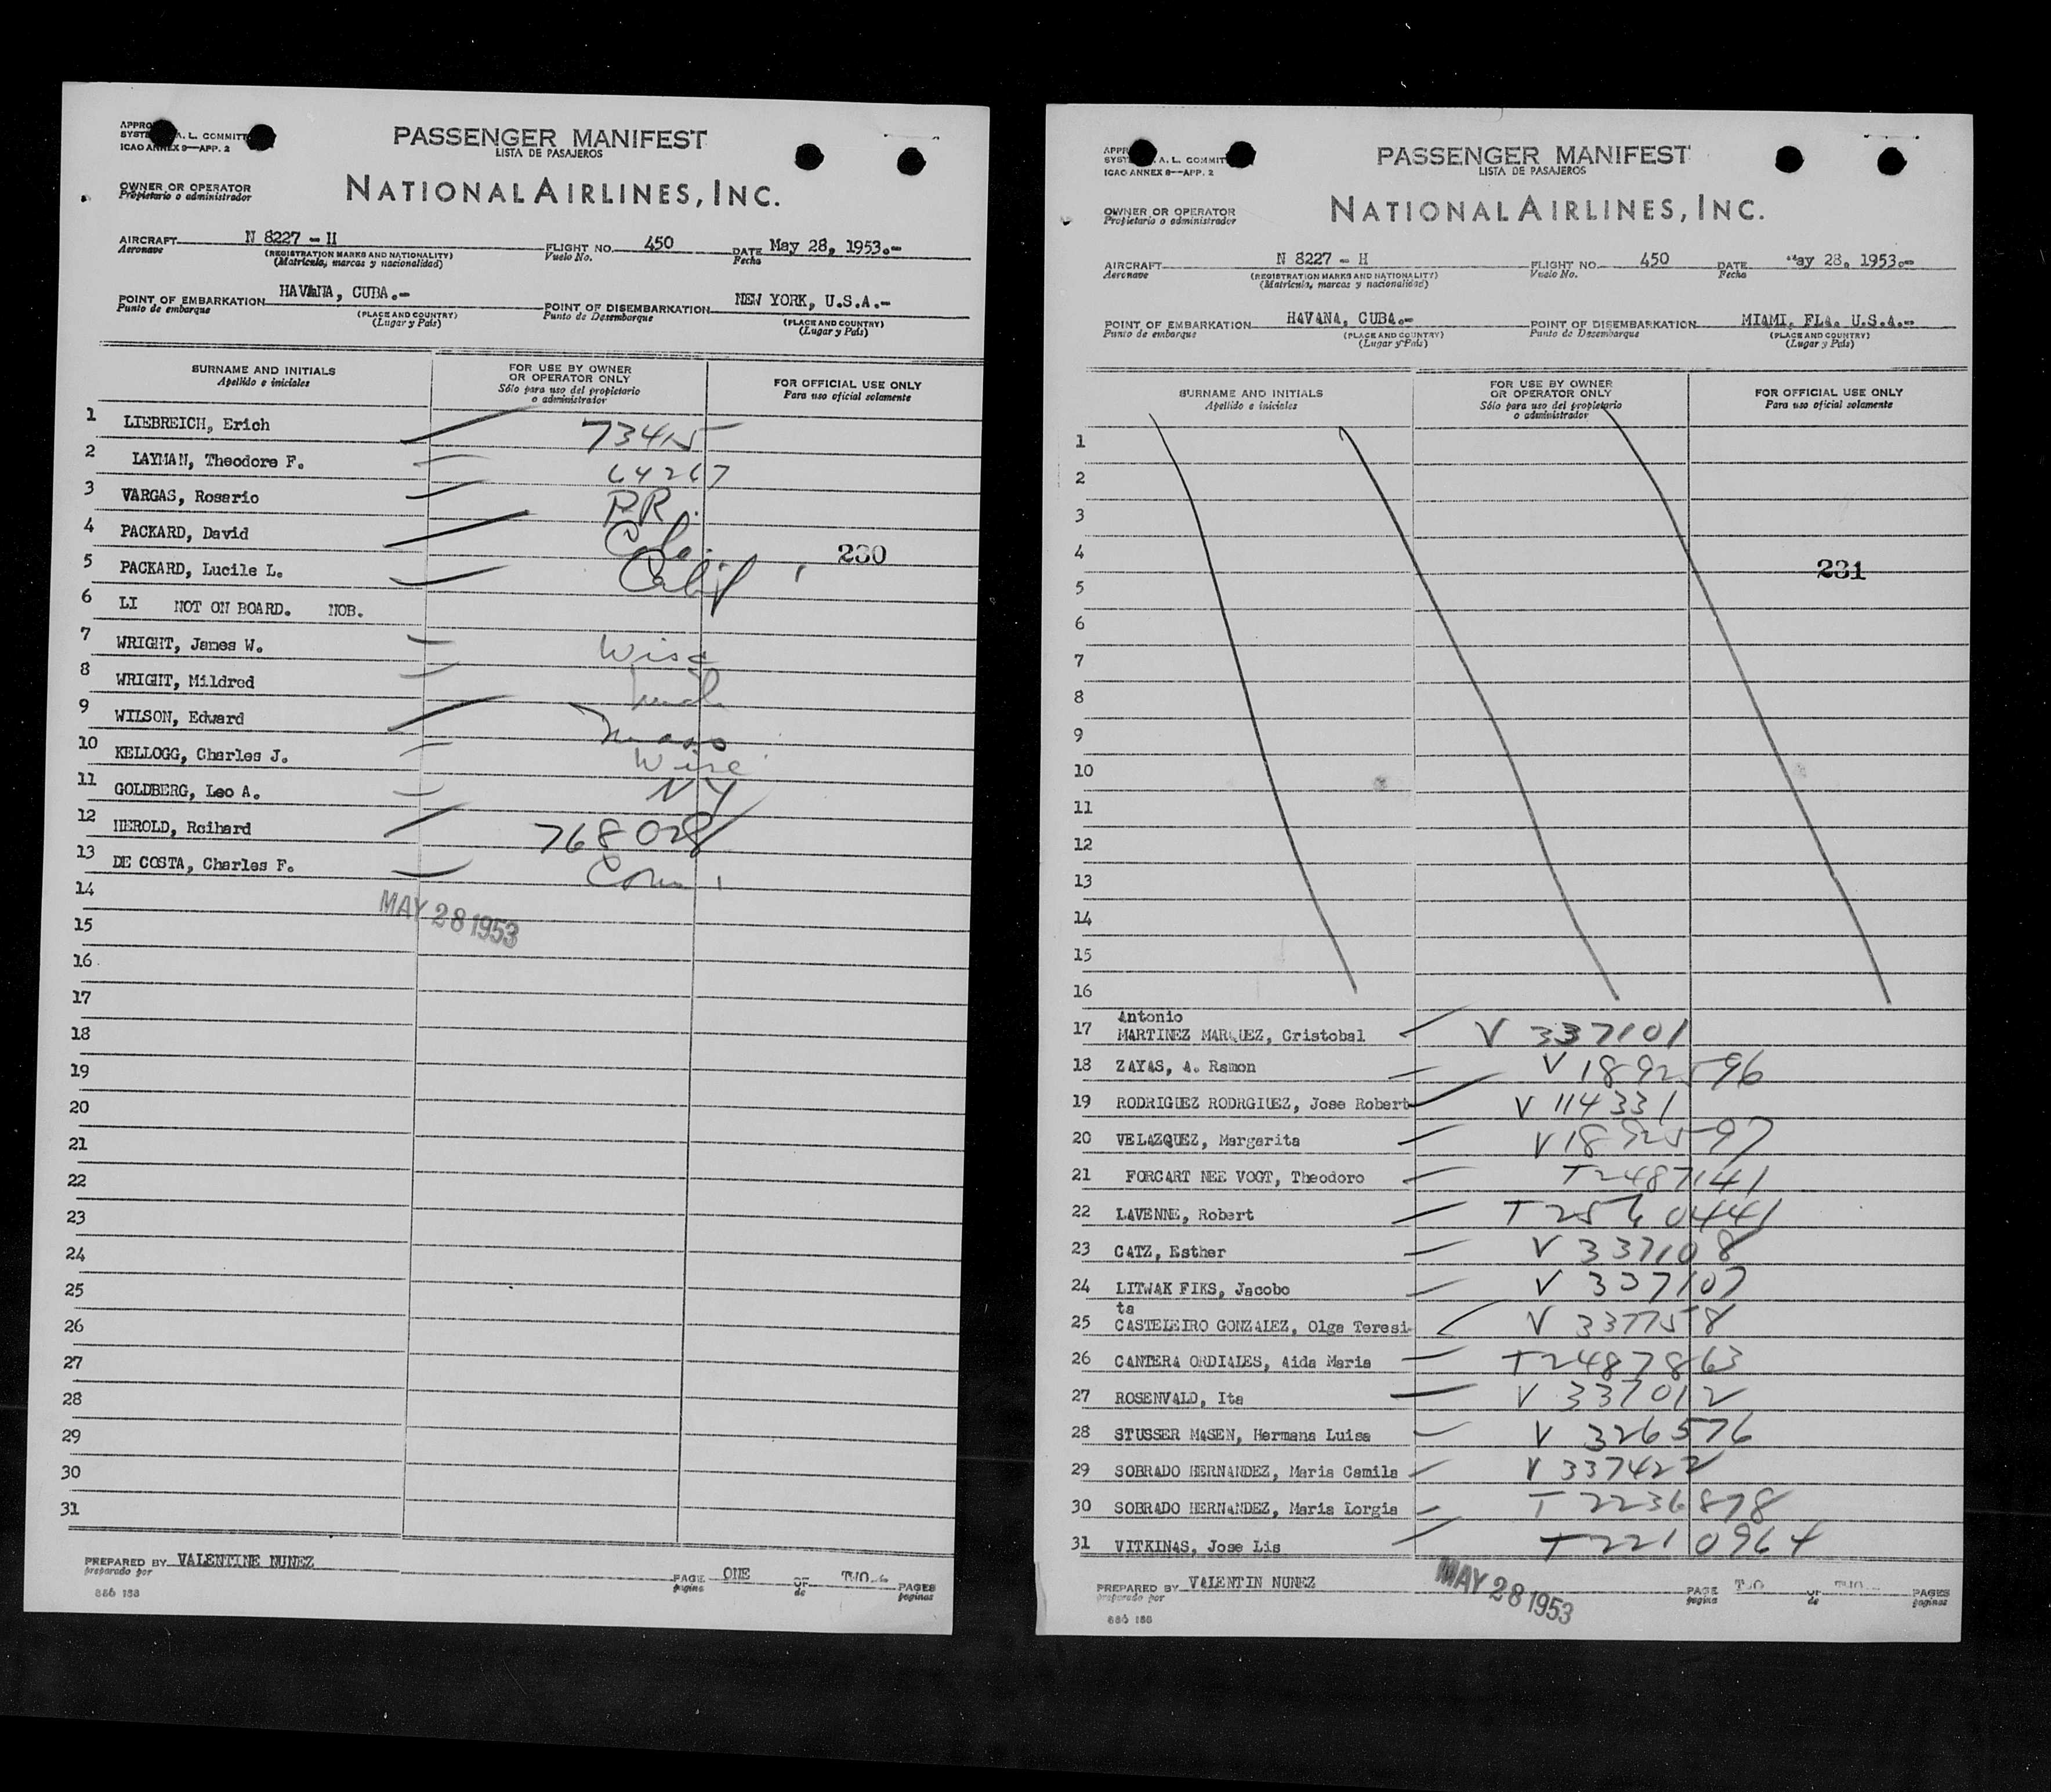 PASSENGER MANIFEST
LISTA DE PASAJEROS
ICAO ANNEX 9—APP. 2
OWNER OR OPERATOR
Propietario o administrador
NATIONAL AIRLINES, INC.
AIRCRAFT N 8227 - H FLIGHT NO. 450 DATE May 28, 1953.-
Aeronave (REGISTRATION MARKS AND NATIONALITY) Vuelo No. Fecha
(Matricula, marcas y nacionalidad)
POINT OF EMBARKATION HAVANA, CUBA.- POINT OF DISEMBARKATION NEW YORK, U.S.A.-
Punto de embarque (PLACE AND COUNTRY) Punto de Desembarque (PLACE AND COUNTRY)
(Lugar y País) (Lugar y País)
SURNAME AND INITIALS FOR USE BY OWNER OR OPERATOR ONLY FOR OFFICIAL USE ONLY
Apellido e iniciales Sólo para uso del propietario o administrador Para uso oficial solamente
1 LIEBREICH, Erich 73415
2 LAYMAN, Theodore F. 64267
3 VARGAS, Rosario P.R.
4 PACKARD, David 230
5 PACKARD, Lucile L. Calif
6 LI NOT ON BOARD. NOB.
7 WRIGHT, James W. Wisc
8 WRIGHT, Mildred
9 WILSON, Edward Mass
10 KELLOGG, Charles J. Wisc
11 GOLDBERG, Leo A. NY
12 HEROLD, Rcihard 768028
13 DE COSTA, Charles F. Conn
14
MAY 28 1953
15
16
17
18
19
20
21
22
23
24
25
26
27
28
29
30
31
PREPARED BY VALENTINE NUNEZ PAGE ONE OF TWO PAGES
preparado por pagina de paginas
886 188
PASSENGER MANIFEST
LISTA DE PASAJEROS
ICAO ANNEX 9—APP. 2
OWNER OR OPERATOR
Propietario o administrador
NATIONAL AIRLINES, INC.
AIRCRAFT N 8227 - H FLIGHT NO. 450 DATE May 28, 1953.-
Aeronave (REGISTRATION MARKS AND NATIONALITY) Vuelo No. Fecha
(Matricula, marcas y nacionalidad)
POINT OF EMBARKATION HAVANA, CUBA.- POINT OF DISEMBARKATION MIAMI, FLA. U.S.A.-
Punto de embarque (PLACE AND COUNTRY) Punto de Desembarque (PLACE AND COUNTRY)
(Lugar y País) (Lugar y País)
SURNAME AND INITIALS FOR USE BY OWNER OR OPERATOR ONLY FOR OFFICIAL USE ONLY
Apellido e iniciales Sólo para uso del propietario o administrador Para uso oficial solamente
1
2
3
4 231
5
6
7
8
9
10
11
12
13
14
15
16
Antonio
17 MARTINEZ MARQUEZ, Cristobal V 337101
18 ZAYAS, A. Ramon V 1892596
19 RODRIGUEZ RODRGIUEZ, Jose Robert V 114331
20 VELAZQUEZ, Margarita V 1892597
21 FORCART NEE VOGT, Theodoro T 2487141
22 LAVENNE, Robert T 2560441
23 CATZ, Esther V 337108
24 LITWAK FIKS, Jacobo V 337107
ta
25 CASTELEIRO GONZALEZ, Olga Teresi- V 337758
26 CANTERA ORDIALES, Aida Maria T 2487863
27 ROSENVALD, Ita V 337012
28 STUSSER MASEN, Hermana Luisa V 326576
29 SOBRADO HERNANDEZ, Maria Camila V 337422
30 SOBRADO HERNANDEZ, Maria Lorgia T 2236878
31 VITKINAS, Jose Lis T 2210964
PREPARED BY VALENTIN NUNEZ MAY 28 1953 PAGE TWO OF TWO PAGES
preparado por pagina de paginas
886 188